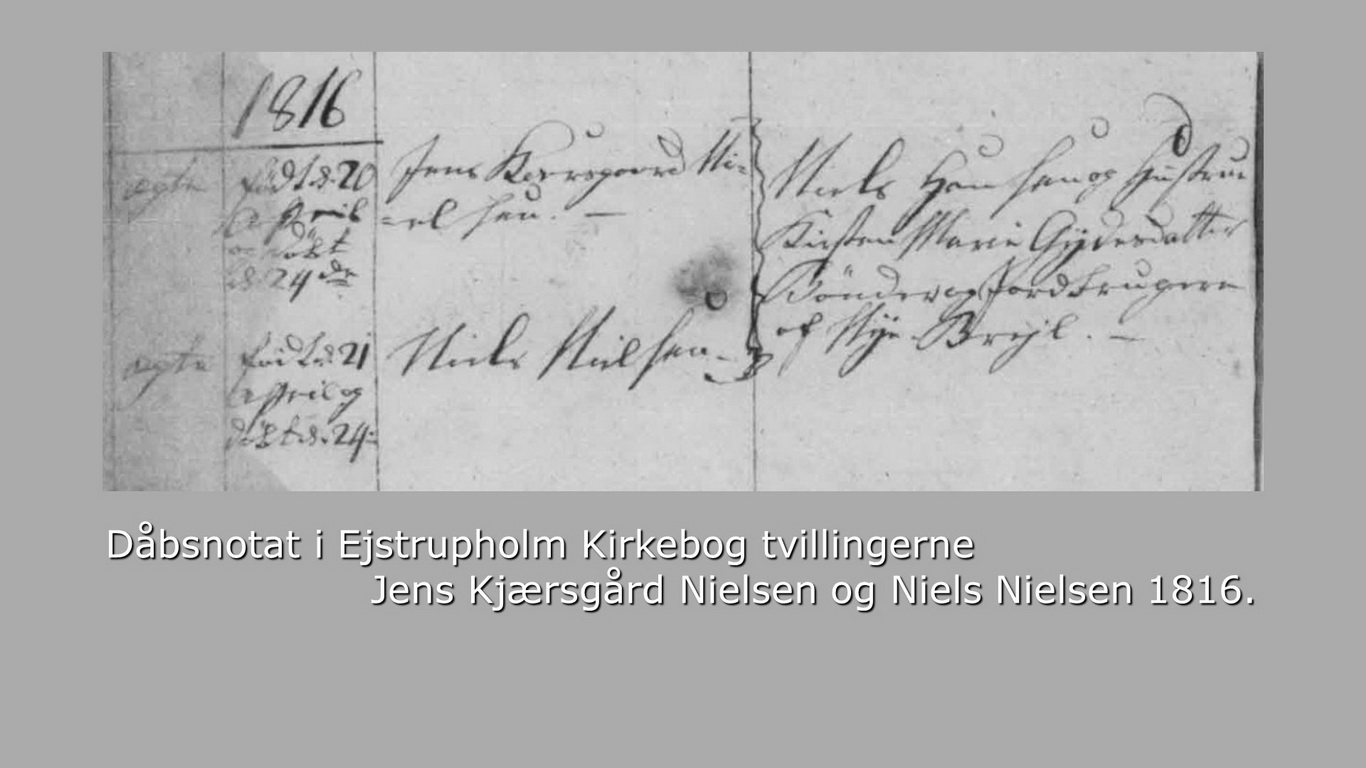 1816
ægte
født d. 20
April
og døbt
d. 24de
Jens Kiærsgaard Ni=
=elsen. —
Niels Hansen og Hustrue
Kirsten Marie Gydesdatter
Bönder og Jordbrugere
af Nye Brejl. —
ægte
født d. 21
April og
döbt d. 24
Niels Nielsen
Dåbsnotat i Ejstrupholm Kirkebog tvillingerne
Jens Kjærsgård Nielsen og Niels Nielsen 1816.